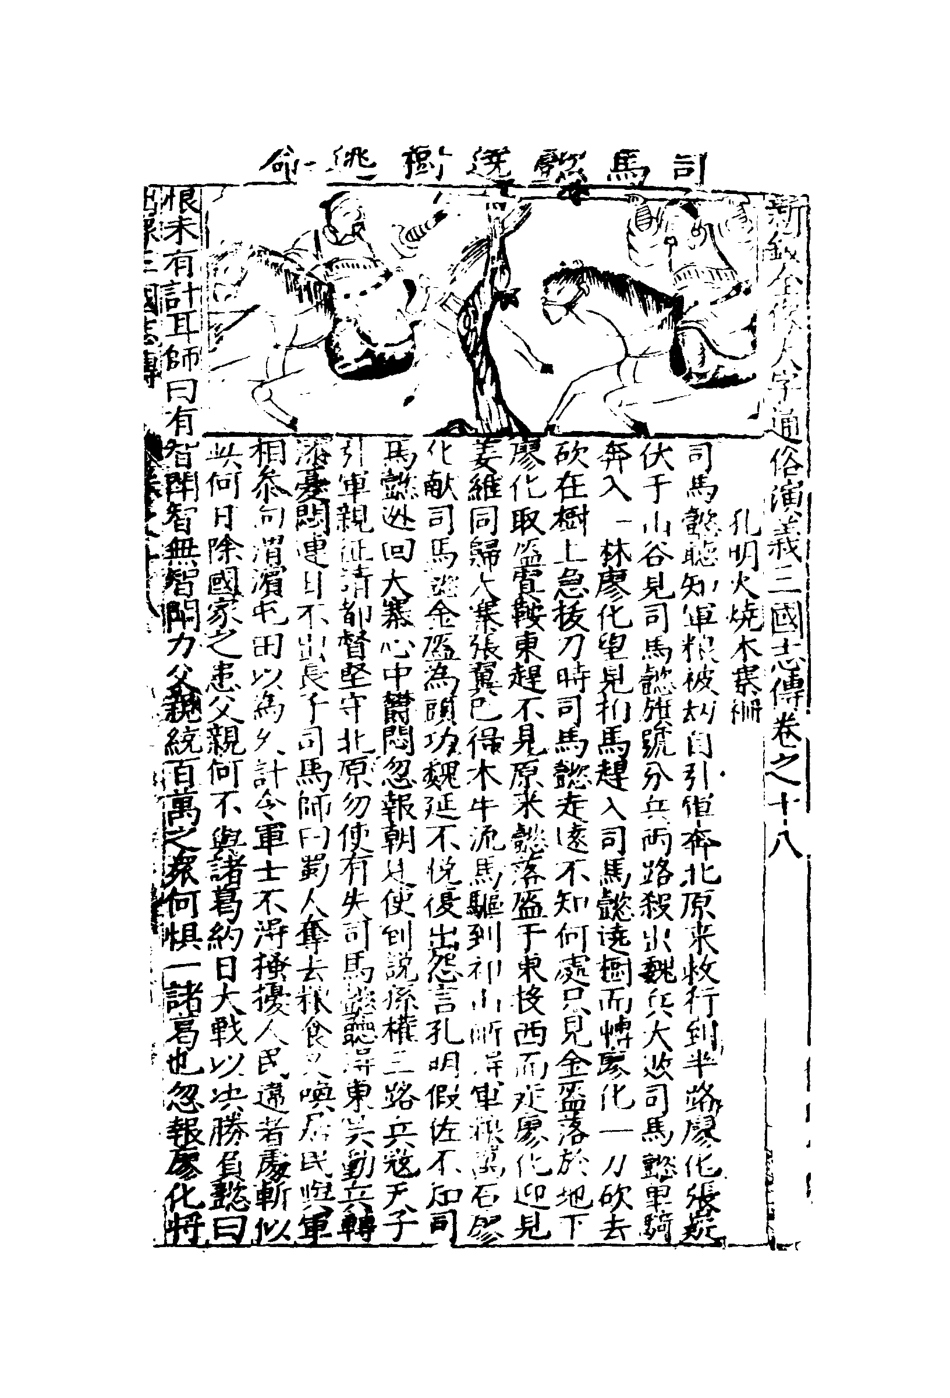 司馬懿遶樹逃命
新鋟全像大字通俗演義三國志傳卷之十八
孔明火燒木柵
司馬懿聽知軍粮被刦自引軍奔北原來救行到半路廖化張嶷
伏于山谷見司馬懿旗號分兵兩路殺出魏兵大敗司馬懿單騎
奔入一林廖化望見拍馬趕入司馬懿遶樹而轉廖化一刀砍去
砍在樹上急拔刀時司馬懿走遠不知何處只見金盔落於地下
廖化取盔置鞍東趕不見原來懿落盔于東投西而走廖化迎見
姜維同歸大寨張翼已得木牛流馬驅到祁山所得軍粮萬石廖
化献司馬懿金盔為頭功魏延不悅復出怨言孔明假佐不知司
馬懿逃回大寨心中欝悶忽報朝廷使到說孫權三路兵寇天子
引軍親征請都督堅守北原勿使有失司馬懿聽得東吳動兵轉
添憂悶連日不出長子司馬師曰蜀人奪去粮食又喚居民與軍
相參向渭濱屯田以為久計令軍士不得搔擾人民違者處斬似
此何日除國家之患父親何不與諸葛約日大戰以决勝負懿曰
恨未有計耳師曰有智鬬智無智鬬力父親統百萬之衆何懼一諸葛也忽報廖化將
三國志傳 卷之十八